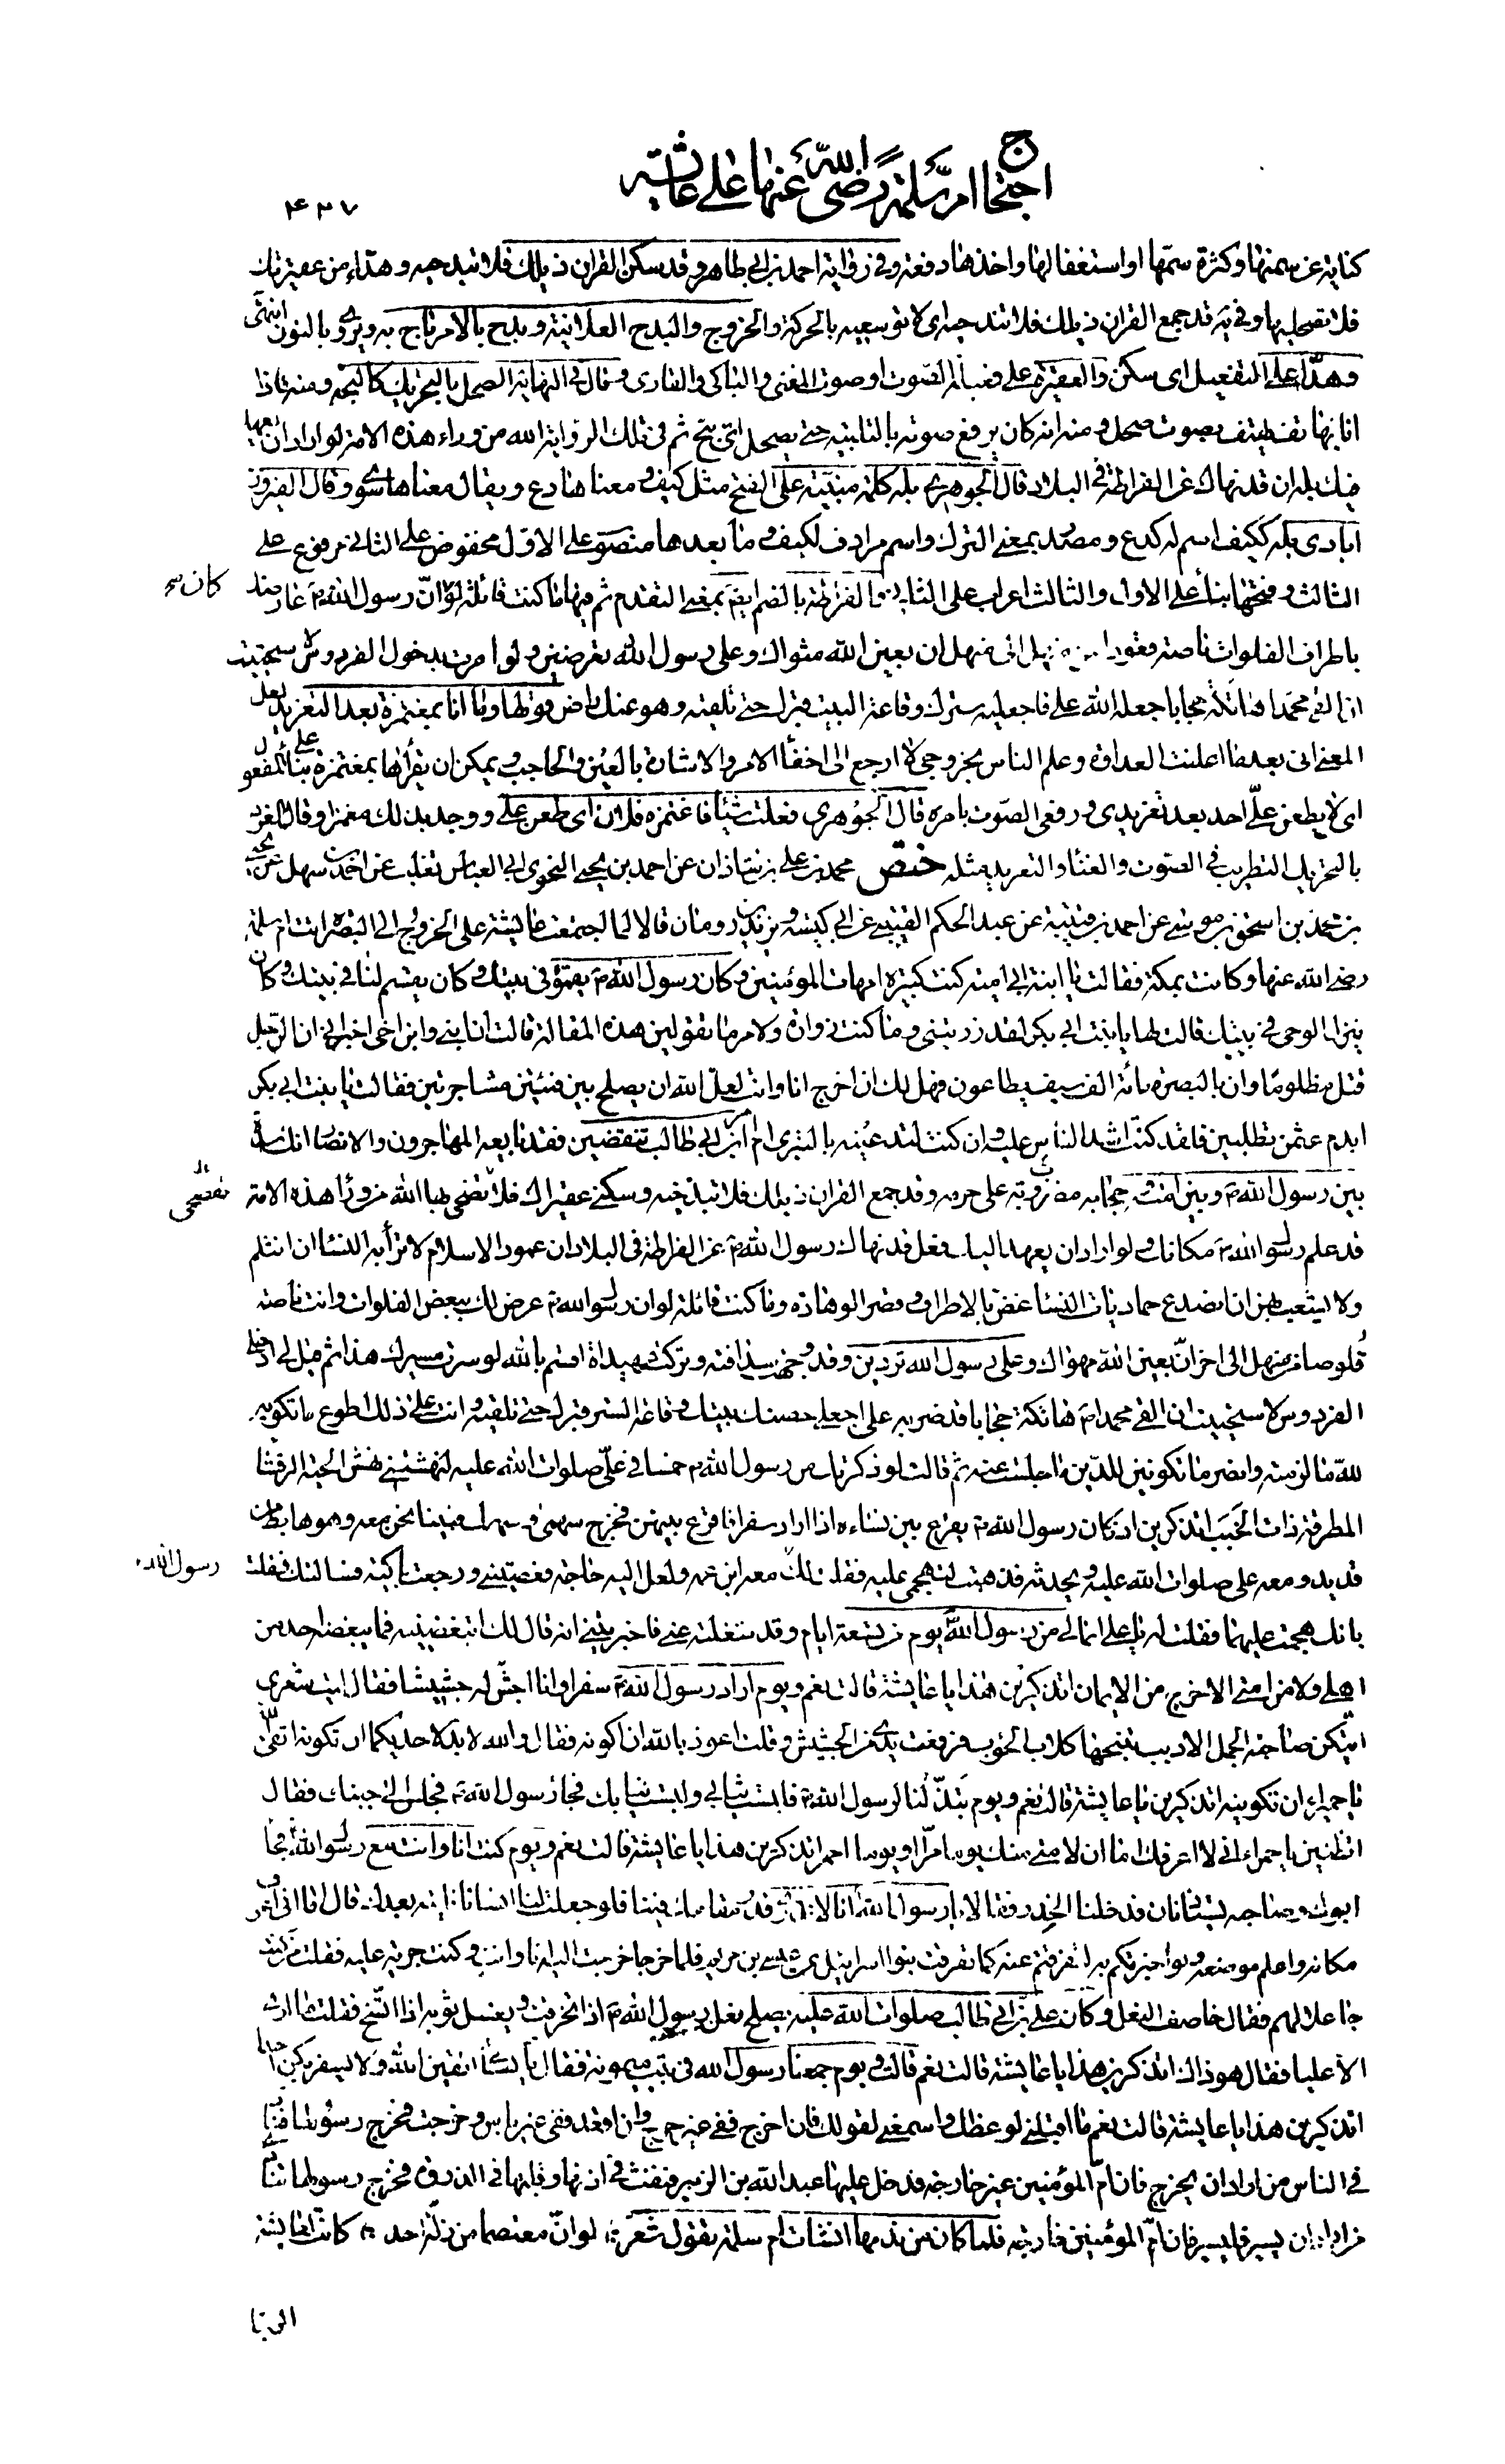 احتجاج ام سلمة رضی الله عنها علی عائشه
۴۳۷
كناية عن سمنها وكثرة سمتها او استغفالها واخذها دفعة وفي رواية احمد بن ابي طاهر وقد سكن القران ذيلك فلا تبدحيه وهدّاء من عقيرتك
فلا تصحليها وفي ية قد جمع القران ذيلك فلا تندحيه اى لا توسعيه بالحركة والخروج والبدح العلانية وبدح بالامر باح به ويروى وبالنون انتهى
وهدّا على التفعيل اى سكن والعقيرة على فعيلة الصوت او صوت المغنى والباكى والقارى وقال في النهاية الصحل بالتحريك كالبحة ومنه فاذا
انا بهاتف يهتف بصوت صحل ومنه انه كان يرفع صوته بالتلبية حتى يصحل اى يبح ثم في تلك الرواية الله من وراء هذه الامة لو اراد ان يعهد
فيك بله ان قد نهاك عن الفراطة في البلاد قال الجوهرى بله كلمة مبنية على الفتح مثل كيف ومعناها دع ويقال معناها سوى وقال الفيروز
آبادى بله ككيف اسم له كدع ومصدر بمعنى الترك واسم مرادف لكيف وما بعدها منصوب على الاول مخفوض على الثانى مرفوع على
الثالث وفتحها بناء على الاول والثالث اعراب على الثانى والفراطة بالضم ايضم بمعنى التقدم ثم فيها ما كنت قائلة لو انّ رسول الله ص عارضك
كان
باطراف الفلوات ناصة قعودا من منهل الى منهل ان بعين الله مثواك وعلى رسول الله تعرضين ولو امرت بدخول الفردوس لاستحييت
ان القى محمدا هاتكة حجابا جعله الله على فاجعليه سترك وقاعة البيت قبرك حتى تلقيه وهو عنك راض قولها وما انا بمغتمزة بعد التغريد لعل
المعنى انى بعد ما اعلنت العداوة وعلم الناس بخروجى لا ارجع الى اخفاء الامر والاشارة بالعين والحاجب ويمكن ان يقرأها بمغتمزة على بناء المفعول
اى لا يطعن علىّ احد بعد تغريدى ورفعى الصوت بامره قال الجوهرى فعلت شيئا فاغتمزه فلان اى طعن على ووجد بذلك مغمزا وقال الغرد
بالتحريك التطريب في الصوت والغناء والتغريد مثله ختص محمد بن على بن شاذان عن احمد بن يحيى النحوى ابى العباس ثعلب عن احمد بن سهل عن يحيى
بن محمد بن اسحق بن موسى عن احمد بن قتيبة عن عبد الحكم القتيبى عن ابى كيسة ويزيد بن رومان قالا لما اجتمعت عايشة على الخروج الى البصرة اتت ام سلمة
رضى الله عنها وكانت بمكة فقالت يا ابنة ابى امية كنت كبيرة امهات المؤمنين وكان رسول الله ص يقمؤ فى بيتك وكان يقسم لنا فى بيتك وكان
ينزل الوحى فى بيتك قالت لها يا بنت ابى بكر لقد زرتنى وما كنت زوارة ولامر ما تقولين هذه المقالة قالت ان ابنى وابن اخى اخبرانى ان الرجل
قتل مظلوما وان بالبصرة مائة الف سيف يطاعون فهل لك ان اخرج انا وانت لعل الله ان يصلح بين فئتين مشاجرتين فقالت يا بنت ابى بكر
ابدم عثمن تطلبين فلقد كنت اشد الناس عليه وان كنت لتدعينه بالتبرى ام امر ابن ابى طالب تنقضين فقد بايعه المهاجرون والانصار انك سدة
بين رسول الله ص وبين امته وحجابه مضروبة على حرمه وقد جمع القران ذيلك فلا تبذخيه وسكنى عقيراك فلا تضحى بها الله من وراء هذه الامة
قد علم رسول الله ص مكانك ولو اراد ان يعهد اليك فعل قد نهاك رسول الله ص عن الفراطة فى البلاد ان عمود الاسلام لا ترأبه النساء ان انثلم
ولا يشعب بهن ان انصدع حماديات النساء غض بالاطراف وقصر الوهادة وما كنت قائلة لو ان رسول الله ص عرض لك ببعض الفلوات وانت ناصة
قلوصا من منهل الى اخر انّ بعين الله مهواك وعلى رسول الله تردين وقد وجهت سدافته وتركت عهيداه اقسم بالله لو سرت مسيرك هذا ثم قيل لى ادخلى
الفردوس لاستحييت ان القى محمدا ص هاتكة حجابا قد ضربه على اجعلى حصنك بيتك وقاعة الستر قبرك حتى تلقيه وانت على ذلك اطوع ما تكونين
لله ما لزمته وانصر ما تكونين للدين ما جلست عنه ثم قالت لو ذكرتك من رسول الله ص خمسا فى علىّ صلوات الله عليه لنهشتنى نهش الحية الرقشاء
المطرقة ذات الخبب اتذكرين اذ كان رسول الله ص يقرع بين نساءه اذا اراد سفرا فاقرع بينهن فخرج سهمى وسهمك فبينا نحن معه وهو هابط من
قديد ومعه على صلوات الله عليه ويحدثه فذهبت لتهجمى عليه فقلت لك رسول الله معه ابن عمه ولعل اليه حاجة فعصيتنى ورجعت باكية فسالتك فقلت
بانك هجمت عليهما فقلت له يا على انما لى من رسول الله يوم من تسعة ايام وقد شغلته عنى فاخبرتنى انه قال لك اتبغضينه فما يبغضه احد من
اهلى ولا من امتى الا خرج من الايمان اتذكرين هذا يا عايشة قالت نعم ويوم اراد رسول الله ص سفرا وانا اجش له جشيشا فقال ليت شعرى
ايتكن صاحبة الجمل الادبب تنبحها كلاب الحوءب فرفعت يدى من الجشيش وقلت اعوذ بالله ان اكونه فقال والله لابد لاحديكما ان تكونه اتقى الله
يا حميراء ان تكونيه اتذكرين يا عايشة قالت نعم ويوم تبذّلنا لرسول الله ص فلبست ثيابى ولبست ثيابك فجاء رسول الله ص فجلس الى جنبك فقال
اتظنين يا حميراء انى لا اعرفك اما ان لامتى منك يوما مرّا او يوما احمر اتذكرين هذا يا عايشة قالت نعم ويوم كنت انا وانت مع رسول الله فجاء
ابوك وصاحبه يستاذنان فدخلنا الخدر فقالا يا رسول الله انا لا ندرى قدر مقامك فينا فلو جعلت لنا انسانا ناتيه بعدك قال اما انى اعرف
مكانه واعلم موضعه ولو اخبرتكم به لتفرقتم عنه كما تفرقت بنوا اسرائيل عن عيسى بن مريم فلما خرجا خرجت اليه انا وانت وكنت جرية عليه فقلت من كنت
جاعلا لهم فقال خاصف النعل وكان على بن ابى طالب صلوات الله عليه يصلح نعل رسول الله ص اذا تخرقت ويغسل ثوبه اذا اتسخ فقلت ما ارى
الا عليا فقال هو ذاك اتذكرين هذا يا عايشة قالت نعم قالت ويوم جمعنا رسول الله فى بيت ميمونة فقال يا نساء اتقين الله ولا يسفر بكن احد
اتذكرين هذا يا عايشة قالت نعم ما اقبلنى لوعظك واسمعنى لقولك فان اخرج ففى غير حرج وان اقعد ففى غير باس وخرجت فخرج رسولها فنادى
فى الناس من اراد ان يخرج فان امّ المؤمنين غير خارجة فدخل عليها عبد الله بن الزبير فنفث فى اذنها وقلبها فى الذروة فخرج رسولها ينادى
من اراد ان يسير فليسير فان امّ المؤمنين خارجة فلما كان من ندمها انشات ام سلمة تقول شعر لو انّ معتصما من زلة احد كانت لعايشة